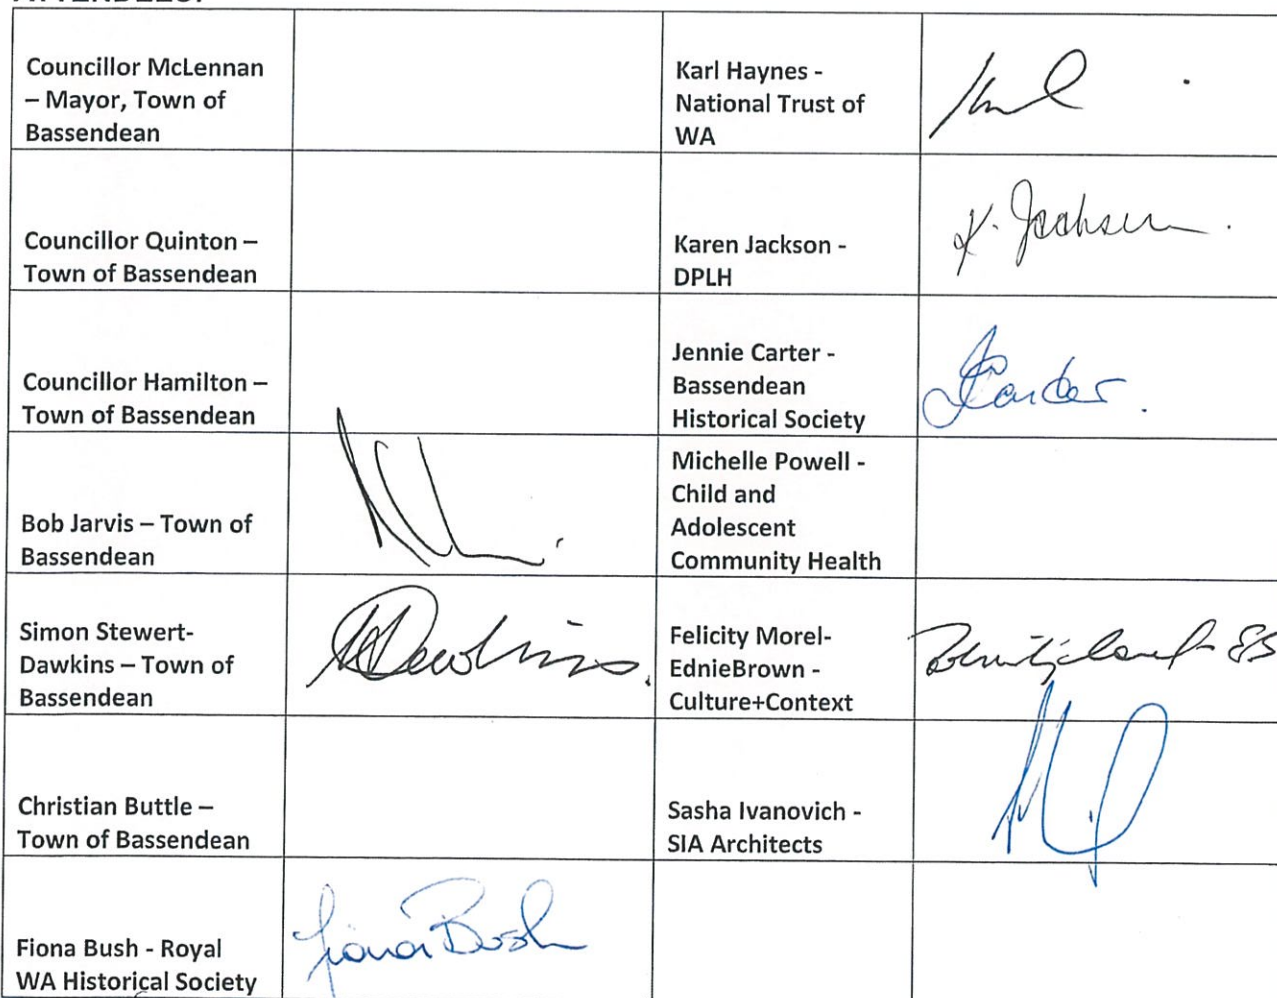 Councillor McLennan
– Mayor, Town of
Bassendean
Karl Haynes -
National Trust of
WA
Councillor Quinton –
Town of Bassendean
Karen Jackson -
DPLH
K. Jackson.
Councillor Hamilton –
Town of Bassendean
Jennie Carter -
Bassendean
Historical Society
JCarter.
Bob Jarvis – Town of
Bassendean
Michelle Powell -
Child and
Adolescent
Community Health
Simon Stewert-
Dawkins – Town of
Bassendean
Dawkins.
Felicity Morel-
EdnieBrown -
Culture+Context
Christian Buttle –
Town of Bassendean
Sasha Ivanovich -
SIA Architects
Fiona Bush - Royal
WA Historical Society
Fiona Bush